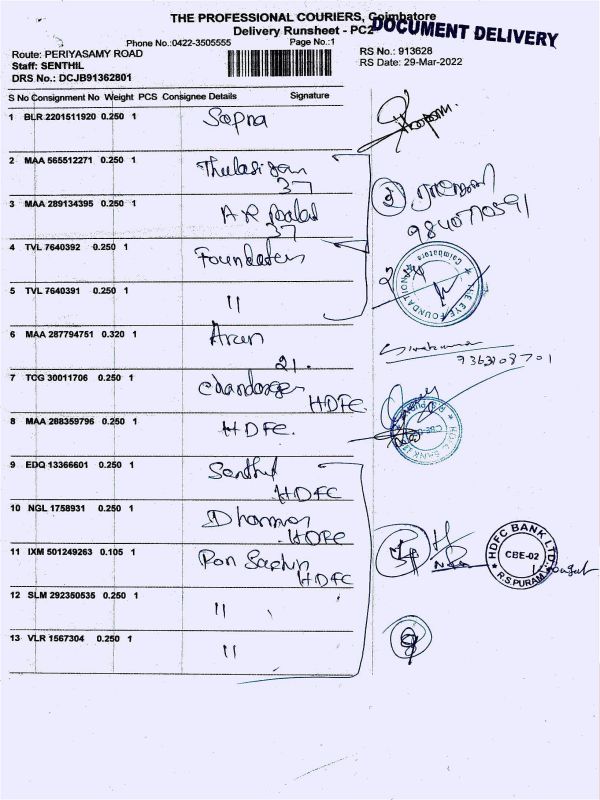 THE PROFESSIONAL COURIERS, Coimbatore
DOCUMENT DELIVERY
Delivery Runsheet - PC2
Phone No:0422-3505555 Page No.:1
Route: PERIYASAMY ROAD
RS No.: 913628
Staff: SENTHIL
RS Date: 29-Mar-2022
DRS No.: DCJB91362801
S No Consignment No Weight PCS Consignee Details Signature
1 BLR 2201511920 0.250 1 Sapna
2 MAA 565512271 0.250 1 Thulasi
37
3 MAA 289134395 0.250 1 A R
37
9840770591
4 TVL 7640392 0.250 1 Foundation
THE EYE FOUNDATION
Coimbatore
5 TVL 7640391 0.250 1 "
6 MAA 287794751 0.320 1 Arun
21.
Sivakumar
9363108701
7 TCG 30011706 0.250 1 HDFC
8 MAA 288359796 0.250 1 HDFC.
HDFC BANK LTD
R.S. PURAM
9 EDQ 13366601 0.250 1 Senthil
HDFC
10 NGL 1758931 0.250 1
HDFC
11 IXM 501249263 0.105 1
HDFC
HDFC BANK LTD.
CBE-02
R.S.PURAM
12 SLM 292350535 0.250 1 "
13 VLR 1567304 0.250 1 "